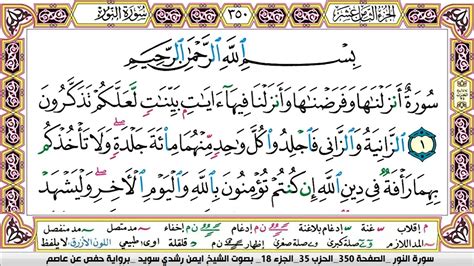 الجزء الثامن عشر
٣٥٠
سورة النور
بِسْمِ ٱللَّهِ ٱلرَّحْمَٰنِ ٱلرَّحِيمِ
سُورَةٌ أَنزَلْنَٰهَا وَفَرَضْنَٰهَا وَأَنزَلْنَا فِيهَآ ءَايَٰتٍۭ بَيِّنَٰتٍ لَّعَلَّكُمْ تَذَكَّرُونَ
١ ٱلزَّانِيَةُ وَٱلزَّانِي فَٱجْلِدُوا۟ كُلَّ وَٰحِدٍ مِّنْهُمَا مِا۟ئَةَ جَلْدَةٍ وَلَا تَأْخُذْكُم
بِهِمَا رَأْفَةٌ فِي دِينِ ٱللَّهِ إِن كُنتُمْ تُؤْمِنُونَ بِٱللَّهِ وَٱلْيَوْمِ ٱلْءَاخِرِ وَلْيَشْهَدْ
م إقلاب غنة إدغام بلاغنة إدغام إخفاء مد متصل مد منفصل
المد اللازم صلة كبرى صلة صغرى مد عارض قلقلة أوى طبيعي اللون الأزرق لا يلفظ
سورة النور _ الصفحة 350_ الحزب 35_ الجزء 18 _ بصوت الشيخ ايمن رشدي سويد _ برواية حفص عن عاصم